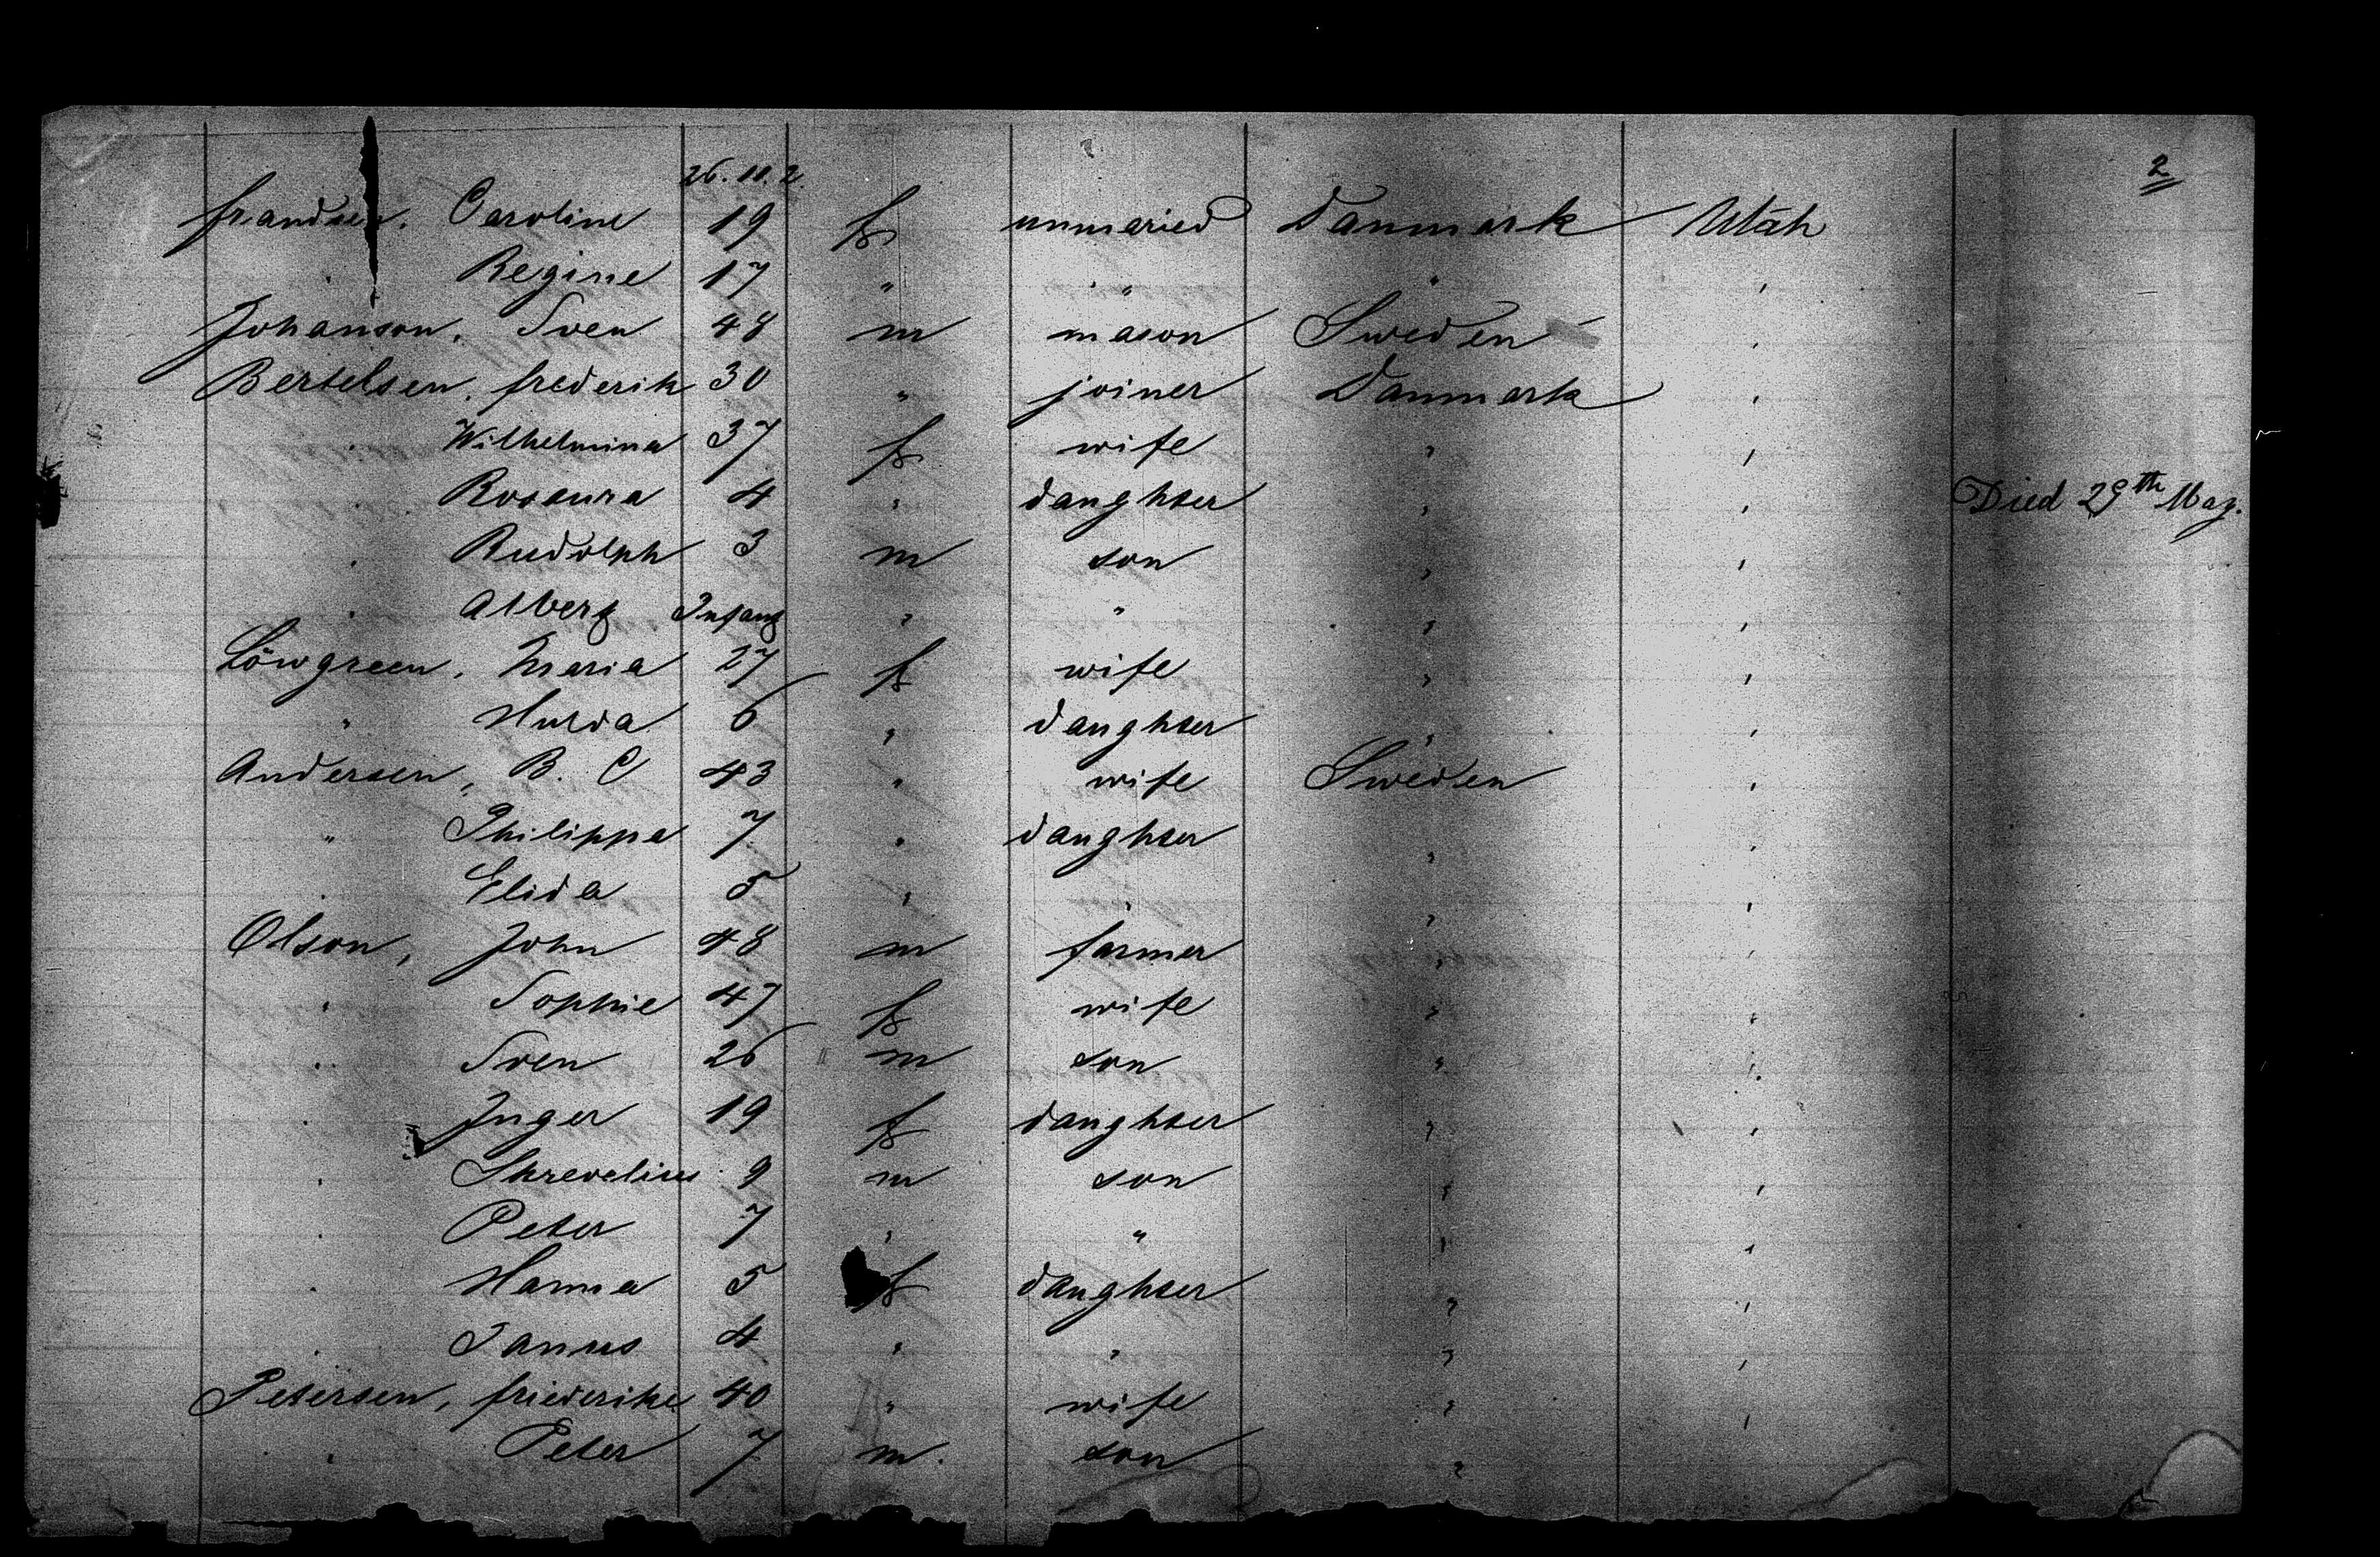 2
26. 11. 2.
frandsen. Caroline 19 f unmaried Danmark Utah
" Regine 17 " " " "
Johanson, Sven 48 m mason Sweden "
Bertelsen, frederik 30 " joiner Danmark "
" Wilhelmina 37 f wife " "
" Rosaura 4 " daughter " " Died 29th May.
" Rudolph 3 m son " "
" Albert Infant " " " "
Löwgreen, Maria 27 f wife " "
" Hulda 6 " daughter " "
Andersen, B. C 43 " wife Sweden "
" Philippa 7 " daughter " "
" Elida 5 " " " "
Olson, John 48 m farmer " "
" Sophie 47 f wife " "
" Sven 26 m son " "
" Inger 19 f daughter " "
" Skrevelius 9 m son " "
" Peter 7 " " " "
" Hanna 5 f daughter " "
" 4 " " " "
Petersen, friederike 40 " wife " "
" Peter 7 m. son "